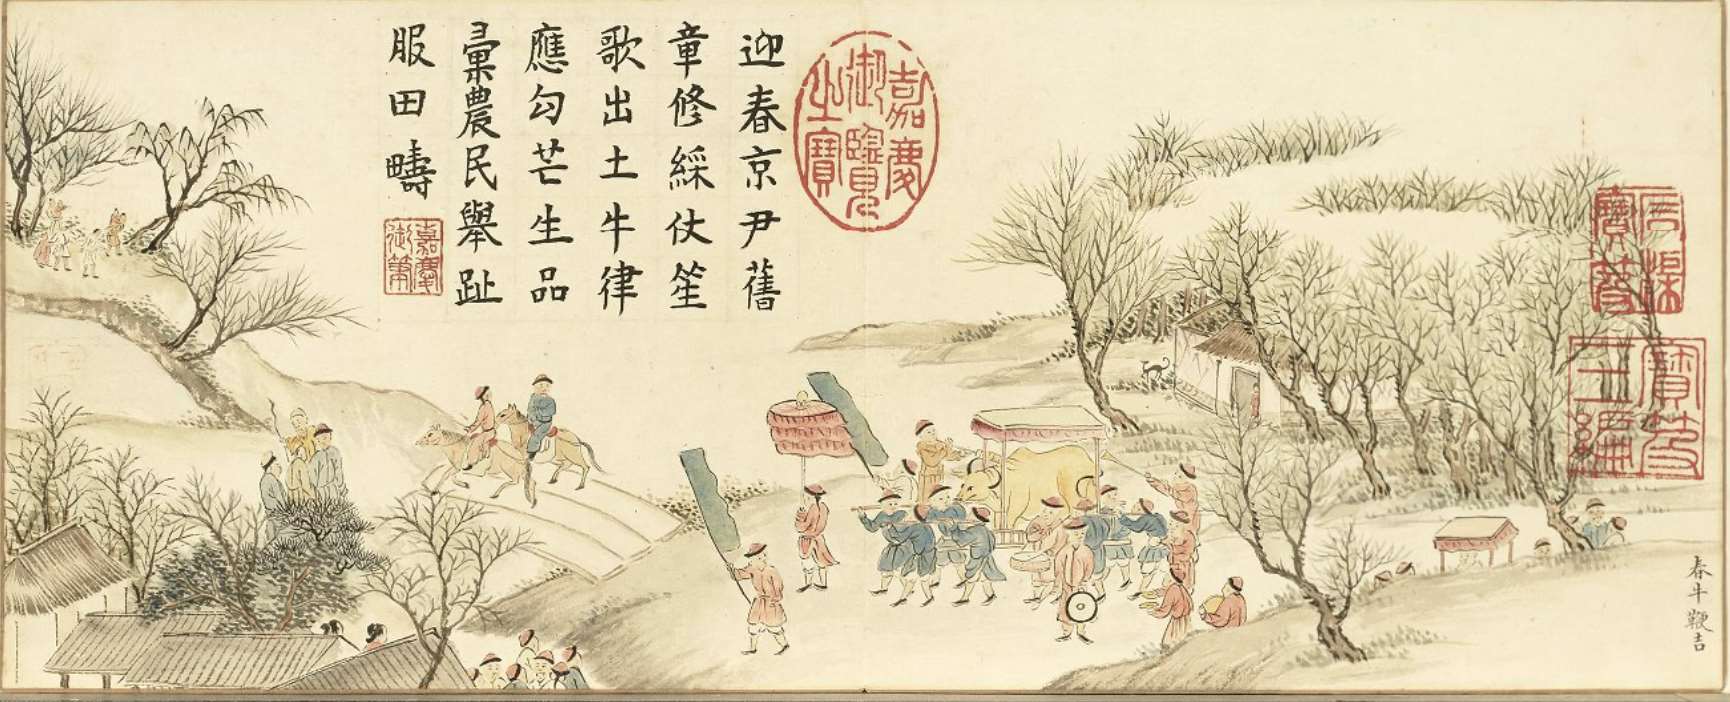 春牛鞭吉
石渠
寶笈
寶笈
三編
嘉慶
御覽
之寶
迎春京尹舊
章修綵仗笙
歌出土牛律
應勾芒生品
彚農民舉趾
服田疇
嘉慶
御筆